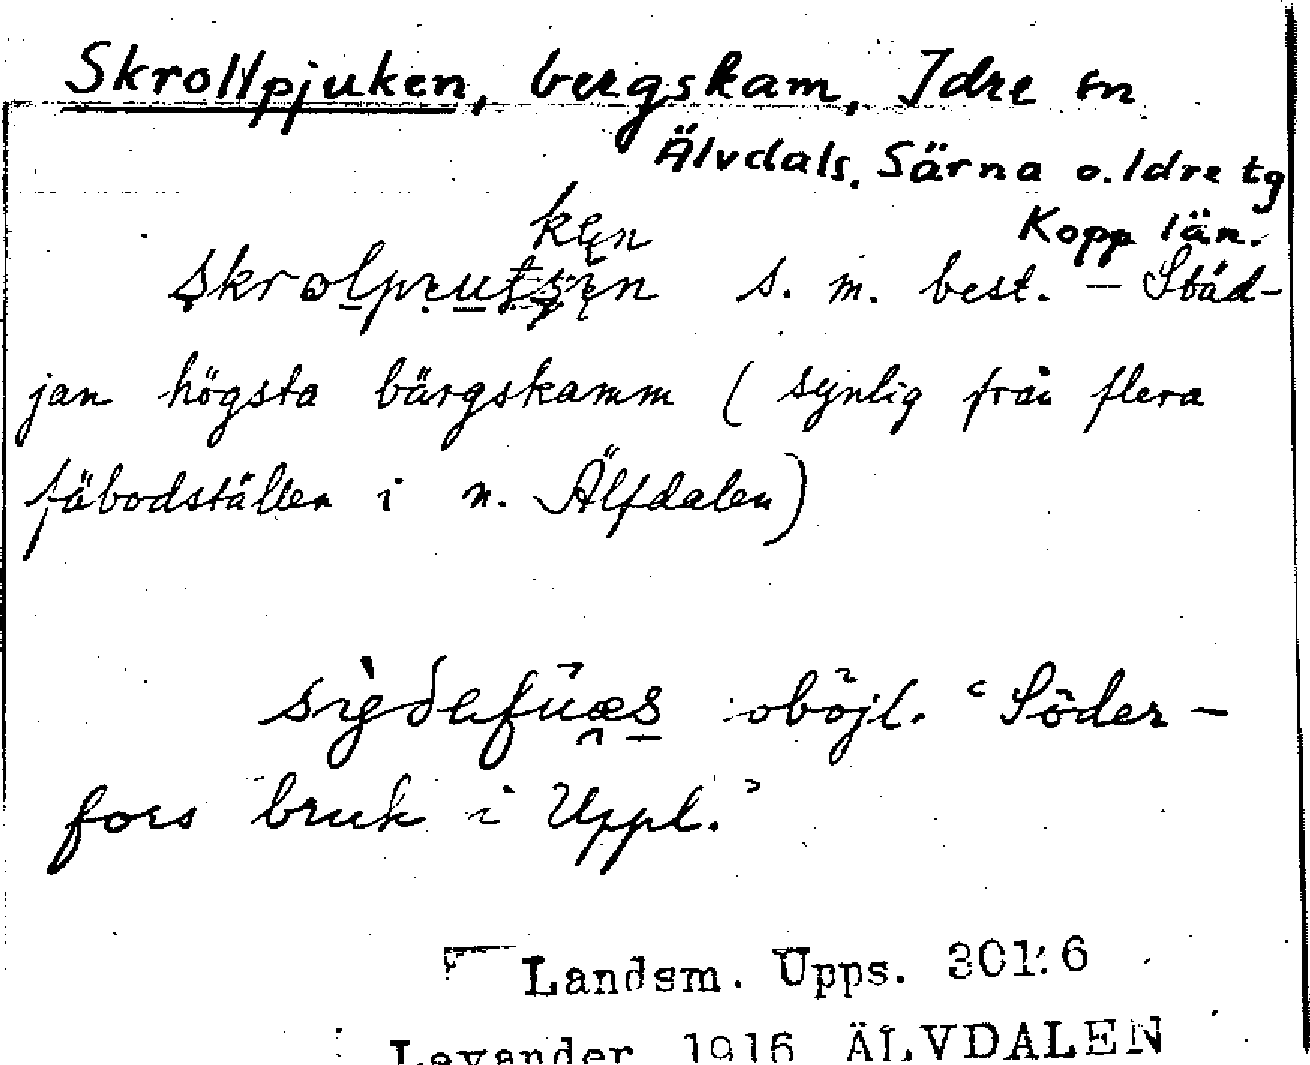 Skrollpjuken, bergskam, Idre sn
Älvdals, Särna o. Idre tg
Kopp län.
ken
s. m. best. – Städ-
jan högsta bärgskamm (synlig från flera
fäbodställen i n. Älfdalen)
oböjl. ‘Söder-
fors bruk i Uppl.’
Landsm. Upps. 301:6
Levander 1916 ÄLVDALEN